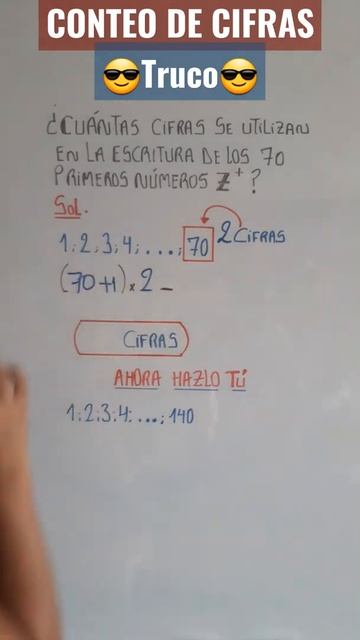 CONTEO DE CIFRAS
😎Truco😎
¿CUÁNTAS CIFRAS SE UTILIZAN
EN LA ESCRITURA DE LOS 70
PRIMEROS NÚMEROS Z⁺?
Sol.
1;2;3;4;...;70 2 CIFRAS
(70+1)×2-
CIFRAS
AHORA HAZLO TÚ
1;2;3;4;...;140